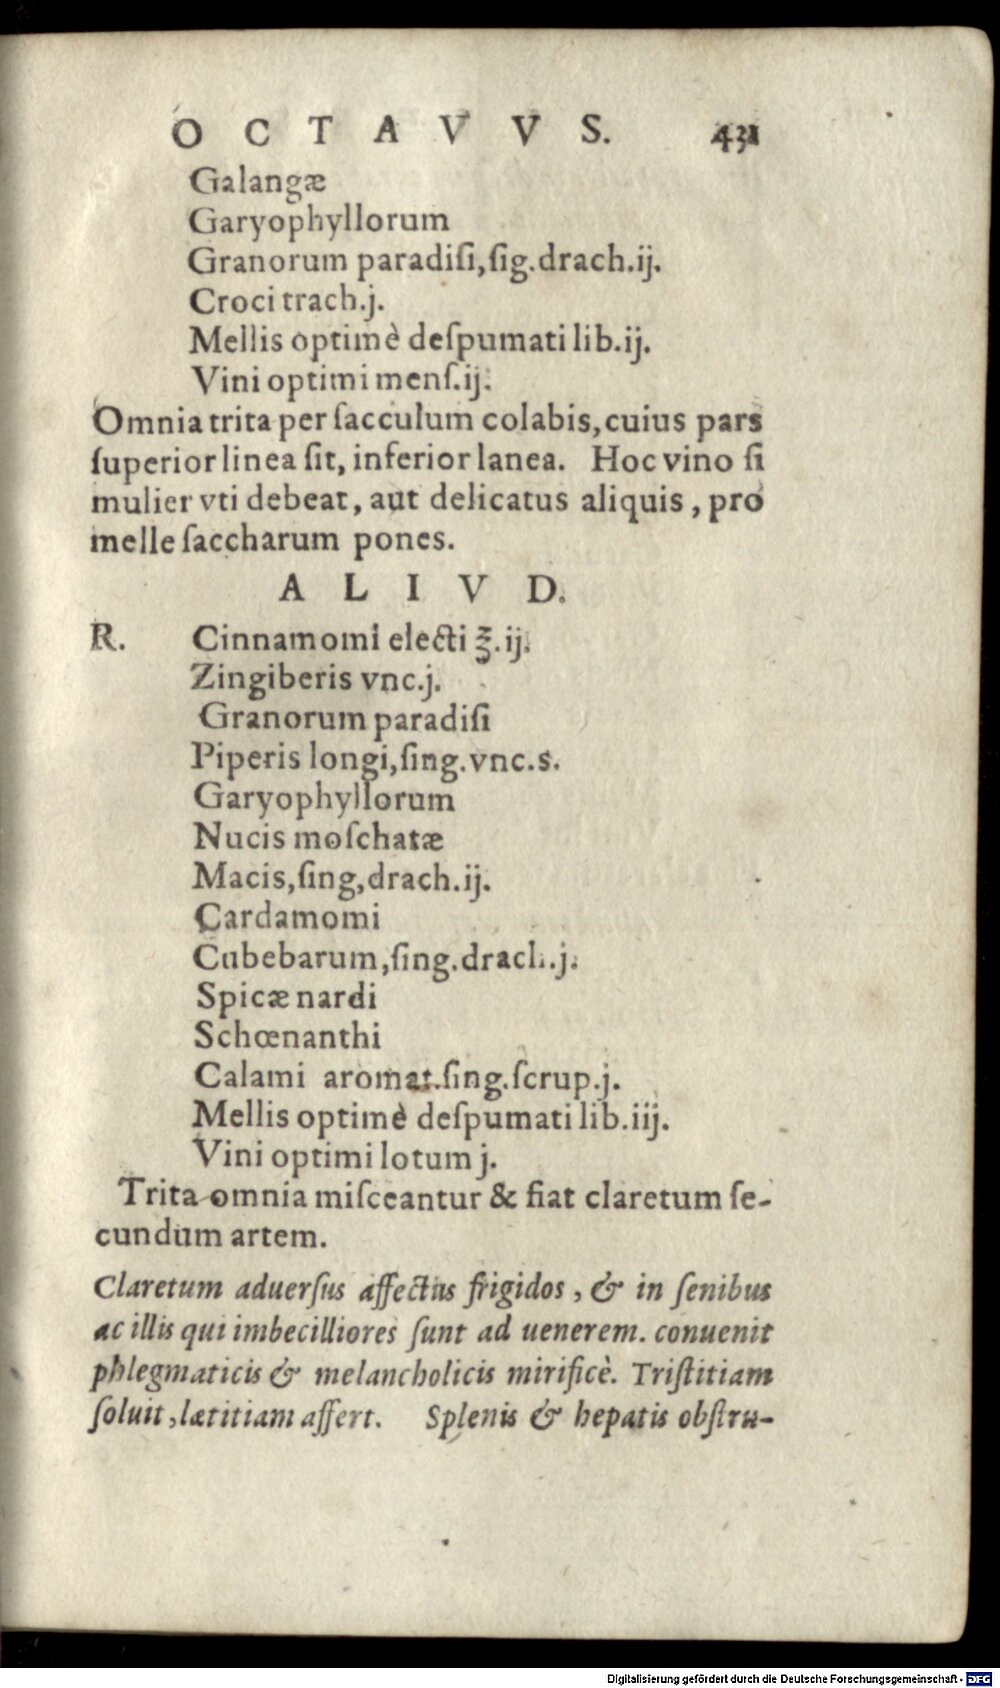 OCTAVVS. 431
Galangæ
Garyophyllorum
Granorum paradiſi,ſig.drach.ij.
Croci trach.j.
Mellis optimè deſpumati lib.ij.
Vini optimi menſ.ij.
Omnia trita per ſacculum colabis,cuius pars
ſuperior linea ſit, inferior lanea. Hoc vino ſi
mulier vti debeat, aut delicatus aliquis, pro
melle ſaccharum pones.
ALIVD.
R. Cinnamomi electi ℥.ij.
Zingiberis vnc.j.
Granorum paradiſi
Piperis longi,ſing.vnc.s.
Garyophyllorum
Nucis moſchatæ
Macis,ſing,drach.ij.
Cardamomi
Cubebarum,ſing.drach.j.
Spicæ nardi
Schœnanthi
Calami aromat.ſing.ſcrup.j.
Mellis optimè deſpumati lib.iij.
Vini optimi lotum j.
Trita omnia miſceantur & fiat claretum ſe-
cundum artem.
Claretum aduerſus affectus frigidos, & in ſenibus
ac illis qui imbecilliores ſunt ad uenerem. conuenit
phlegmaticis & melancholicis mirificè. Triſtitiam
ſoluit, lætitiam affert. Splenis & hepatis obſtru-
Digitalisierung gefördert durch die Deutsche Forschungsgemeinschaft - DFG